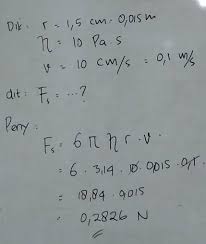 Dik: r = 1,5 cm = 0,015 m
η = 10 Pa s
v = 10 cm/s = 0,1 m/s
dit: Fs = ...?
Peny:
Fs = 6 π η r . v.
= 6 . 3,14 . 10 . 0,015 . 0,1.
= 18,84 . 0,015
= 0,2826 N